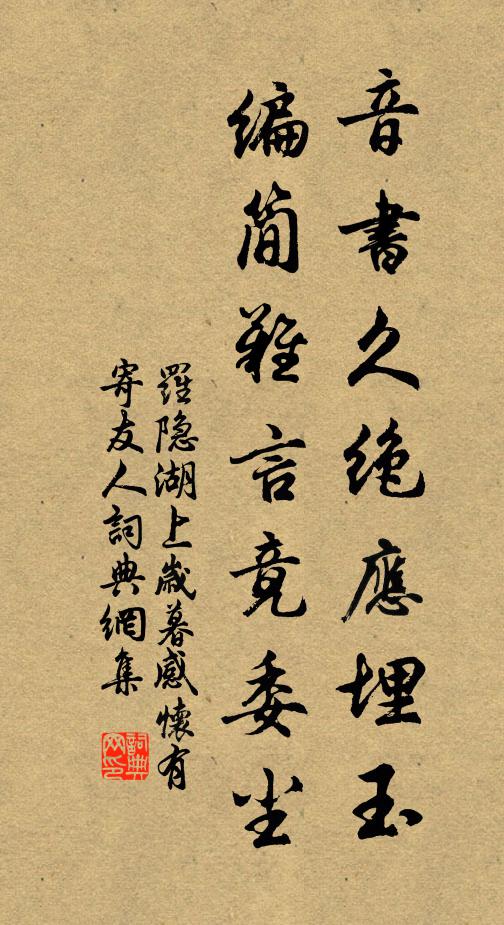 音書久絶應埋玉
編簡難言竟委尘
羅隐湖上歲暮感懷有
寄友人詞典網集
詞典
网印